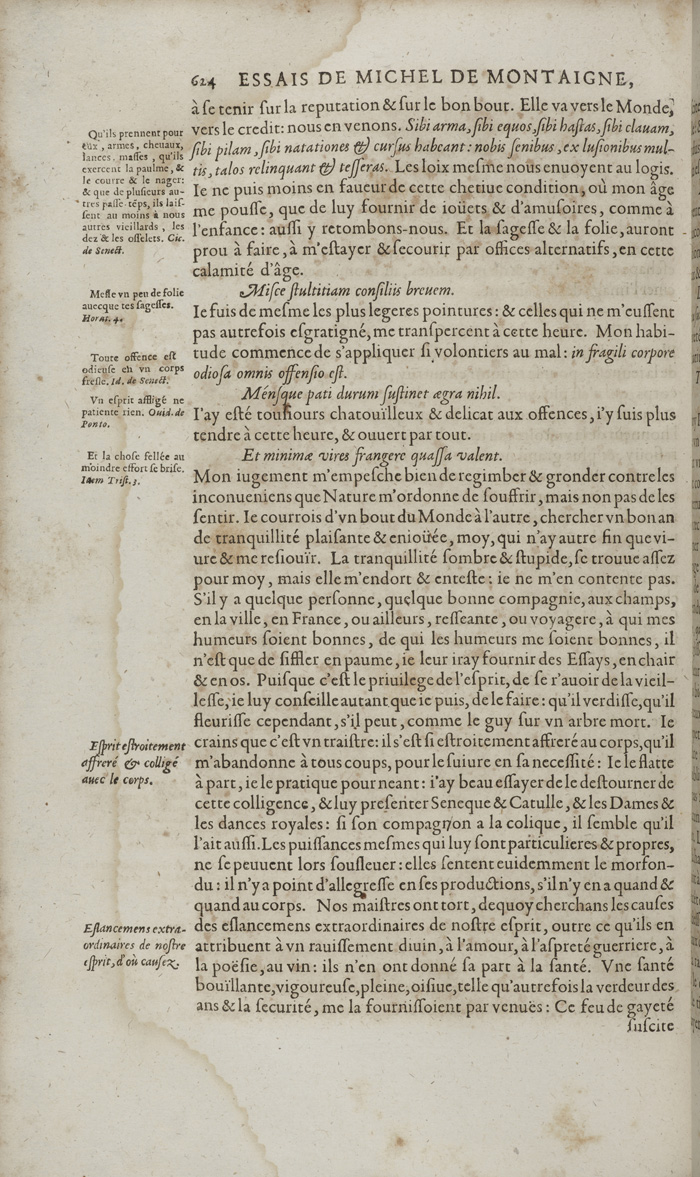 624 ESSAIS DE MICHEL DE MONTAIGNE,
à ſe tenir ſur la reputation & ſur le bon bout. Elle va vers le Monde,
vers le credit: nous en venons. Sibi arma, ſibi equos, ſibi haſtas, ſibi clauam,
ſibi pilam, ſibi natationes & curſus habeant: nobis ſenibus, ex luſionibus mul-
tis, talos relinquant & teſſeras. Les loix meſme nous enuoyent au logis.
Ie ne puis moins en faueur de cette chetiue condition, où mon âge
me pouſſe, que de luy fournir de ioüets & d'amuſoires, comme à
l'enfance: auſſi y retombons-nous. Et la ſageſſe & la folie, auront
prou à faire, à m'eſtayer & ſecourir par offices alternatifs, en cette
calamité d'âge.
Miſce ſtultitiam conſiliis breuem.
Ie fuis de meſme les plus legeres pointures: & celles qui ne m'euſſent
pas autrefois eſgratigné, me tranſpercent à cette heure. Mon habi-
tude commence de s'appliquer ſi volontiers au mal: in fragili corpore
odioſa omnis offenſio eſt.
Ménſque pati durum ſuſtinet ægra nihil.
I'ay eſté touſiours chatoüilleux & delicat aux offences, i'y ſuis plus
tendre à cette heure, & ouuert par tout.
Et minimæ vires frangere quaſſa valent.
Mon iugement m'empeſche bien de regimber & gronder contre les
inconueniens que Nature m'ordonne de ſouffrir, mais non pas de les
ſentir. Ie courrois d'vn bout du Monde à l'autre, chercher vn bon an
de tranquillité plaiſante & enioüée, moy, qui n'ay autre fin que vi-
ure & me reſioüir. La tranquillité ſombre & ſtupide, ſe trouue aſſez
pour moy, mais elle m'endort & enteſte: ie ne m'en contente pas.
S'il y a quelque perſonne, quelque bonne compagnie, aux champs,
en la ville, en France, ou ailleurs, reſſeante, ou voyagere, à qui mes
humeurs ſoient bonnes, de qui les humeurs me ſoient bonnes, il
n'eſt que de ſiffler en paume, ie leur iray fournir des Eſſays, en chair
& en os. Puiſque c'eſt le priuilege de l'eſprit, de ſe r'auoir de la vieil-
leſſe, ie luy conſeille autant que ie puis, de le faire: qu'il verdiſſe, qu'il
fleuriſſe cependant, s'il peut, comme le guy ſur vn arbre mort. Ie
crains que c'eſt vn traiſtre: il s'eſt ſi eſtroitement affreré au corps, qu'il
m'abandonne à tous coups, pour le ſuiure en ſa neceſſité: Ie le flatte
à part, ie le pratique pour neant: i'ay beau eſſayer de le deſtourner de
cette colligence, & luy preſenter Seneque & Catulle, & les Dames &
les dances royales: ſi ſon compagnon a la colique, il ſemble qu'il
l'ait auſſi. Les puiſſances meſmes qui luy ſont particulieres & propres,
ne ſe peuuent lors ſouſleuer: elles ſentent euidemment le morfon-
du: il n'y a point d'allegreſſe en ſes productions, s'il n'y en a quand &
quand au corps. Nos maiſtres ont tort, dequoy cherchans les cauſes
des eſlancemens extraordinaires de noſtre eſprit, outre ce qu'ils en
attribuent à vn rauiſſement diuin, à l'amour, à l'aſpreté guerriere, à
la poëſie, au vin: ils n'en ont donné ſa part à la ſanté. Vne ſanté
boüillante, vigoureuſe, pleine, oiſiue, telle qu'autrefois la verdeur des
ans & la ſecurité, me la fourniſſoient par venuës: Ce feu de gayeté
ſuſcite
Qu'ils prennent pour
eux, armes, cheuaux,
lances, maſſes, qu'ils
exercent la paulme, &
le courre & le nager:
& que de pluſieurs au-
tres paſſe-tēps, ils laiſ-
ſent au moins à nous
autres vieillards, les
dez & les oſſelets. Cic.
de Senect.
Meſle vn peu de folie
auecque tes ſageſſes.
Horat. 4.
Toute offence eſt
odieuſe en vn corps
freſle. Id. de Senect.
Vn eſprit affligé ne
patiente rien. Ouid. de
Ponto.
Et la choſe fellée au
moindre effort ſe briſe.
Idem Triſt. 3.
Eſprit eſtroitement
affreré & colligé
auec le corps.
Eſlancemens extra-
ordinaires de noſtre
eſprit, d'où cauſez.